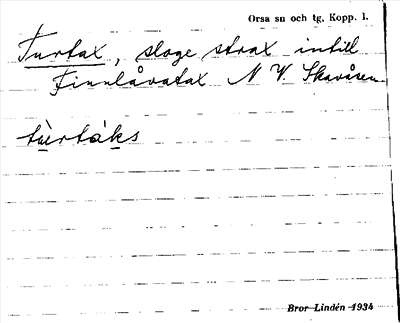 Orsa sn och tg. Kopp. l.
Turtax, sloge strax intill
Finnlåvatax N V. Skavåsen
tùrtàks
Bror Lindén 1934